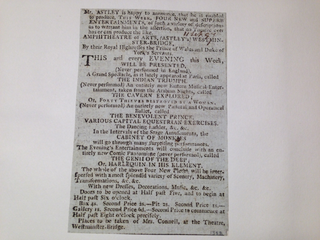 Mr. ASTLEY is happy to announce, that he is enabled
to produce, THIS WEEK, FOUR NEW and SUPERB
ENTERTAINMENTS, of such a nature
as to warrant him in the assertion, that no
has or can produce the like.
AMPHITHEATRE of ARTS, (ASTLEY's) WESTMIN-
STER-BRIDGE,
By their Royal Highnesses the Prince of Wales and Duke of
York's Servants.
THIS and every EVENING this Week,
WILL BE PRESENTED,
(Never performed in England),
A Grand Spectacle, as it lately appeared at Paris, called
THE INDIAN TRIUMPH.
(Never performed) An entirely new Eastern Musical Enter-
tainment, taken from the Arabian Nights, called
THE CAVERN EXPLORED;
Or, FORTY THIEVES DESTROYED by a WOMAN.
(Never performed) An entirely new Pastoral and Operatical
Ballet, called
THE BENEVOLENT PRINCE.
VARIOUS CAPITAL EQUESTRIAN EXERCISES.
The Dancing Ladder, &c. &c.
In the Intervals of the Stage Amusements, the
CABINET OF MONKIES
will go through many surprising performances.
The Evening's Entertainments will conclude with an en-
tirely new Comic Pantomime (never performed), called
THE GENII OF THE DEEP,
Or, HARLEQUIN IN HIS ELEMENT.
The whole of the above Four New Pieces will be inter-
spersed with a most splendid variety of Scenery, Machinery,
Transformations, &c. &c.
With new Dresses, Decorations, Music, &c. &c.
Doors to be opened at Half past Five, and to begin at
Half past Six o'clock.
Box 4s. Second Price 2s.—Pit 2s. Second 1s.—
Gallery 1s. Second Price 6d.—Second Price to commence at
Half past Eight o'clock precisely.
Places to be taken of Mrs. Connell, at the Theatre,
Westminster-Bridge.